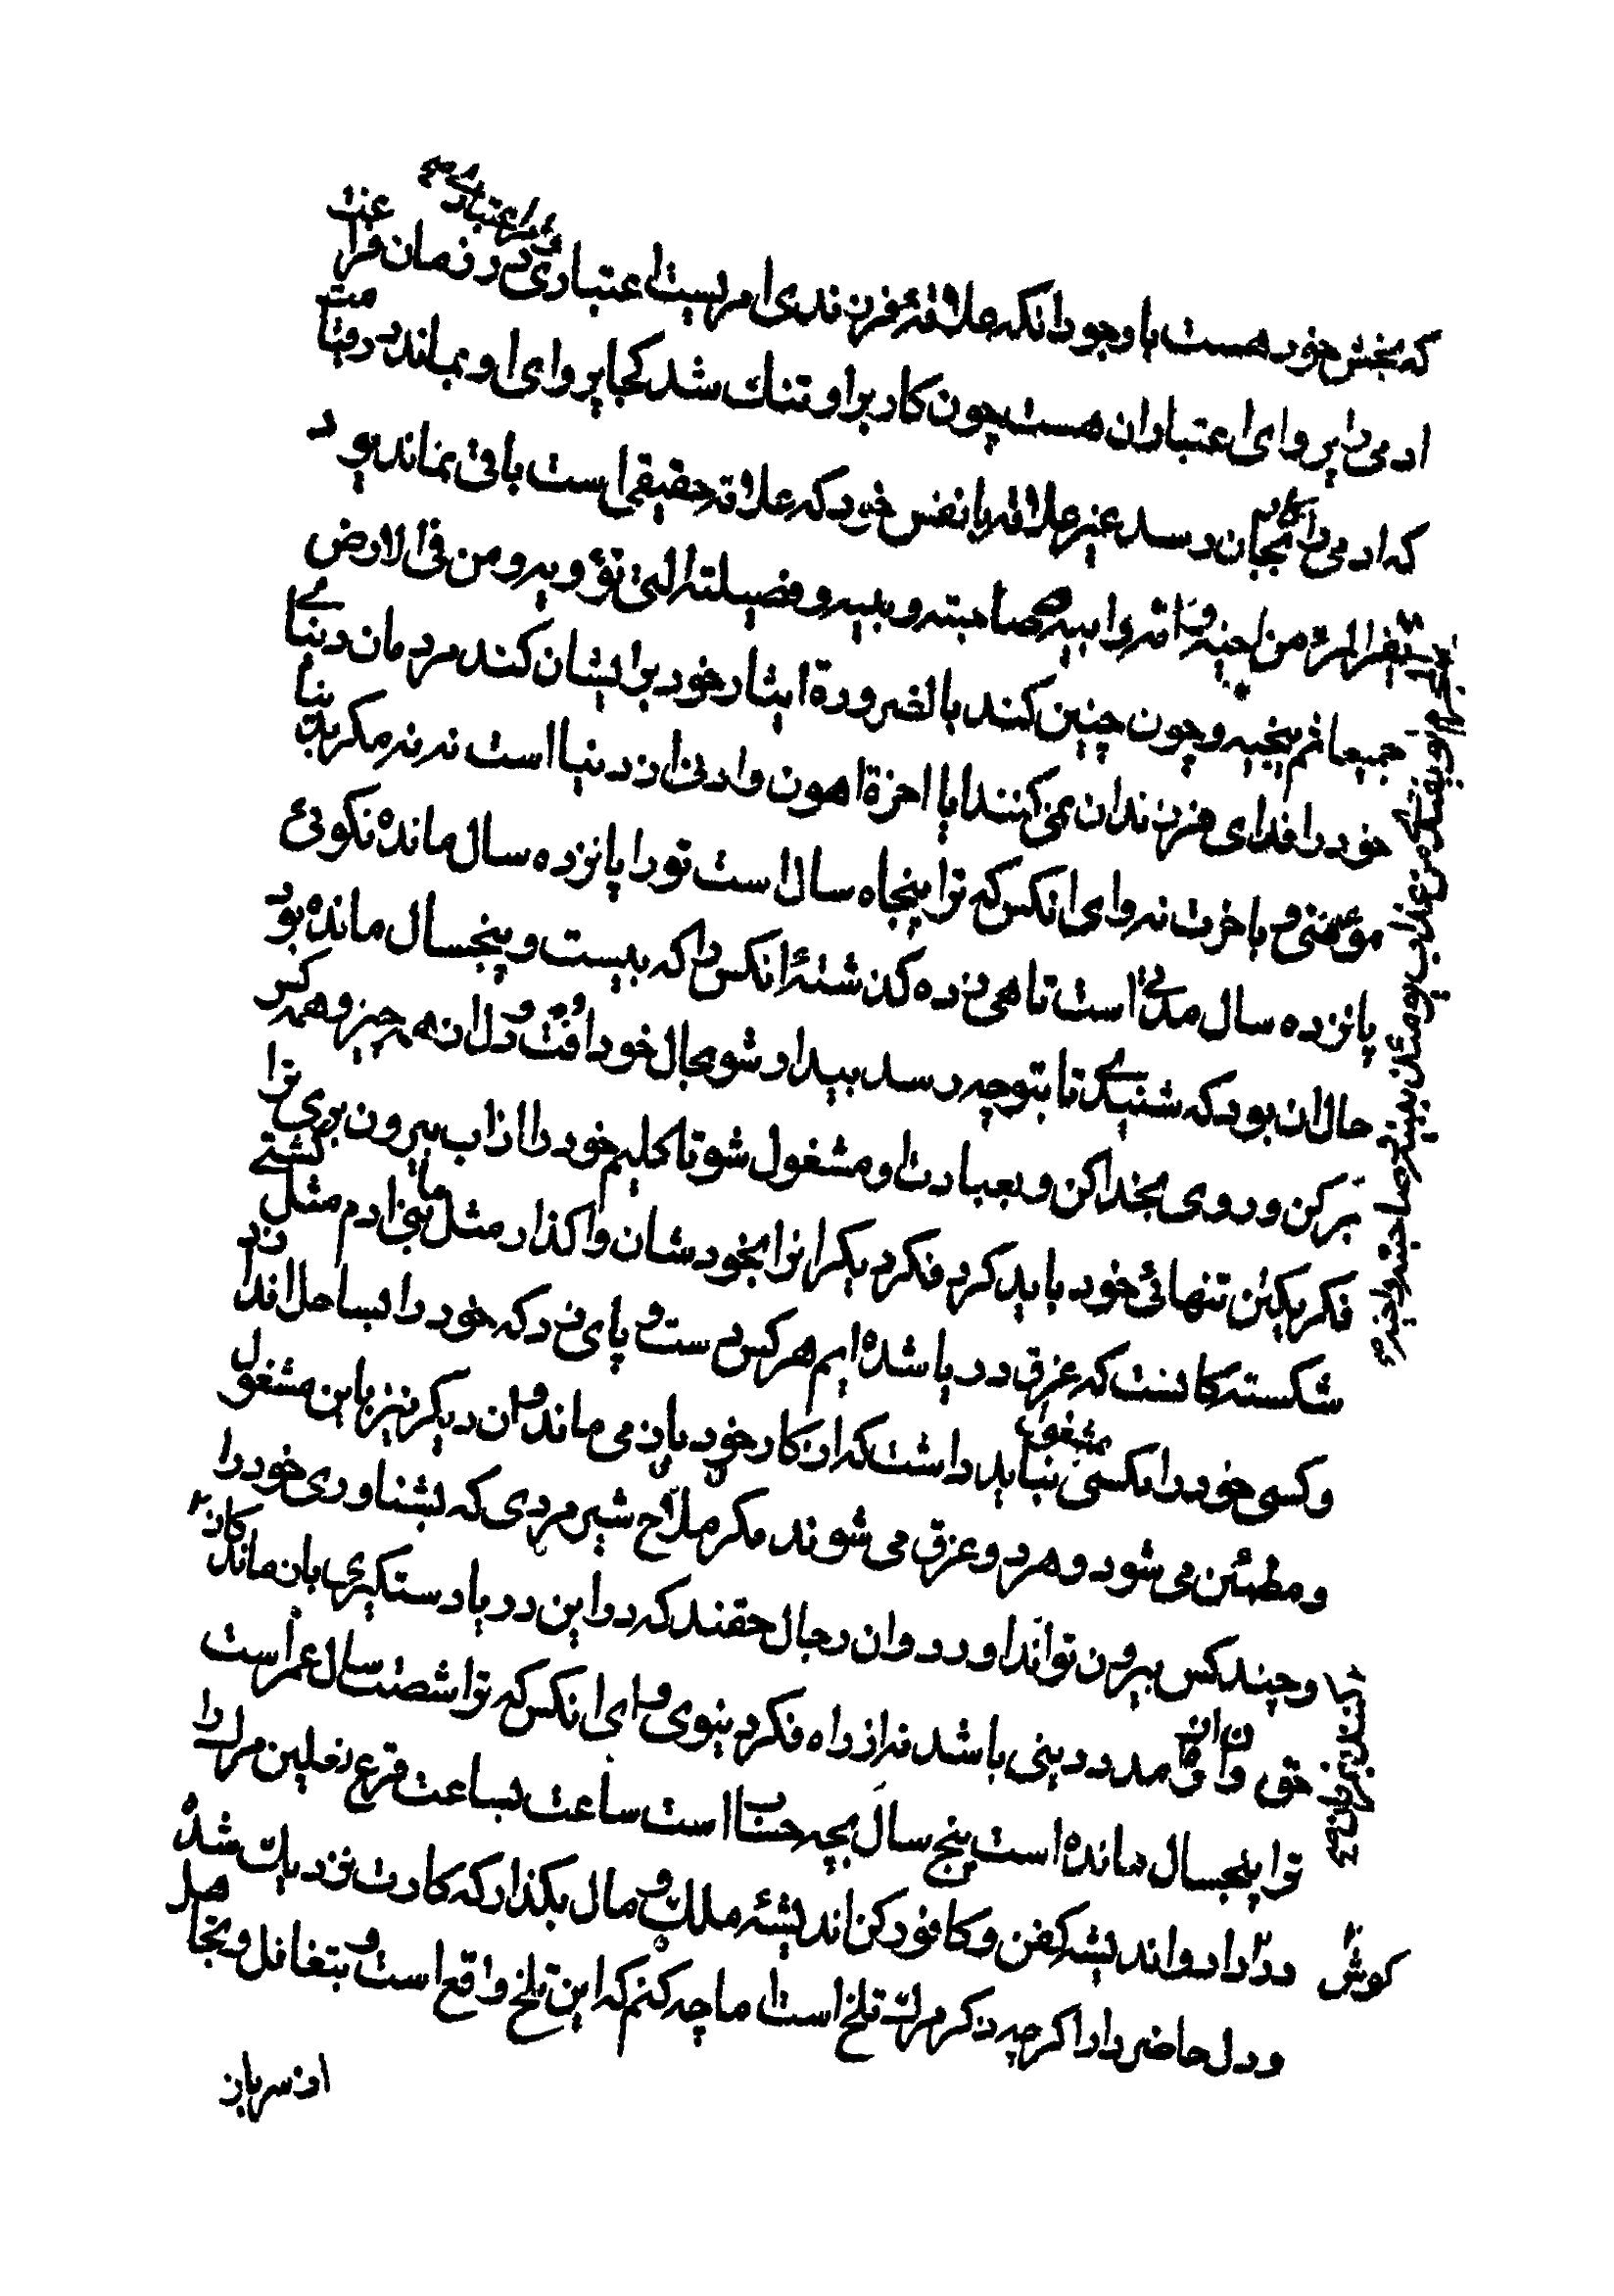 که بخش خود هست با وجود انکه علاقۀ فرزندی امریست اعتباری در زمان فراغت
ادمی را پروای اعتباران هست چون کار بر او تنک شد کجا پروای او بماند در قیامت
که ادمی را بجان رسد غیر علاقه با نفس خود که علاقه حقیقی است باقی نماند یود
یفر المرء من اخیه و امه و ابیه و صاحبته و بنیه و فصیلته التی تؤویه و من فی الارض
جمیعا ثم ینجیه و چون چنین کند بالضرورة ایثار خود بر ایشان کند مردمان دنیای
خود را فدای فرزندان نمی کنند ایا اخرة اهون و ادنی از دنیا است نه نه مکر بدنیا
مؤمنی و باخرت نه وای انکس که ترا پنجاه سال است تو را پانزده سال مانده نکوئی
پانزده سال مدتی است تا هی زده کذشته انکس را که بیست و پنجسال مانده بود
حال ان بود که شنیدی تا بتو چه رسد بیدار شو بحال خود افت و دل از همه چیز و همه کس
برکن و روی بخدا کن و بعبادت او مشغول شو تا کلیم خود را از اب بیرون بری ترا
فکر یکتن تنهائی خود باید کرد فکر دیکرانرا بخودشان واکذار مثل ما بنی ادم مثل کشتی
شکسته کانست که غرق دریا شده ایم هر کس دست و پای زد که خود را بساحل اندازد
و کسی خود را بکسی مشغول نباید داشت که از کار خود باز می ماند و ان دیکر نیز باین مشغول
و مطمئن می شود و هر دو غرق می شوند مکر ملاح شیر مردی که بشناوری خود را
و چند کس بیرون تواند اورد و ان رجال حقند که در این دریا دستکیری بازماندکان
حق و ان مدد دینی باشد نه از راه فکر دینوی و ای انکس که ترا شصت سال عمر است
ترا پنجسال مانده است پنج سال بچه حساب است ساعت بساعت قرع نعلین مرک را
کوش دار و اندیشه کفن و کافور کن اندیشۀ ملک و مال بکذار که کارت نزدیک شده
و دل حاضر دار اکرچه ذکر مرک تلخ است اما چه کنم که این تلخ واقع است و بتغافل و تجاهل
از سر باز